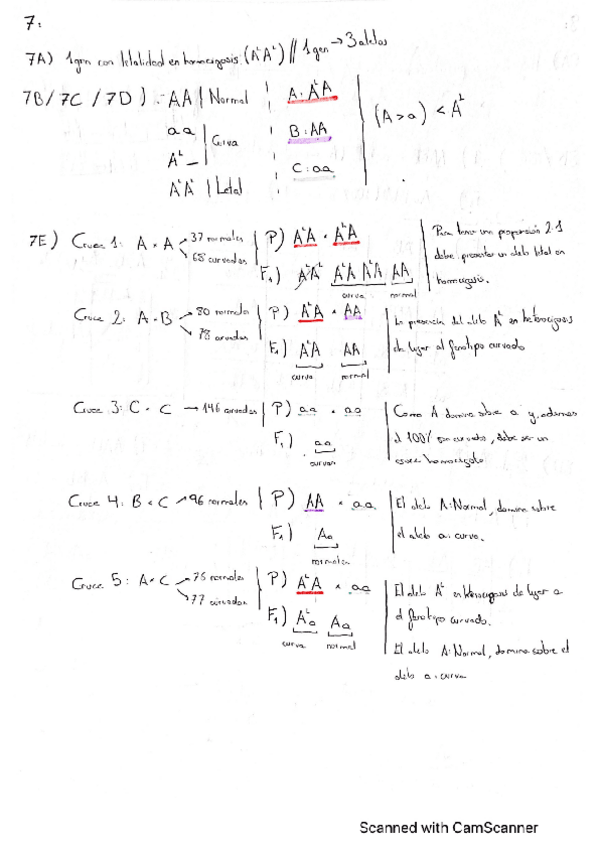 7:
7A) 1 gen con letalidad en homocigosis (AᴸAᴸ) // 1 gen → 3 alelos
7B/7C/7D) - AA | Normal | A: AᴸA
aa | Curva | B: AA
Aᴸ_ | C: aa
AᴸAᴸ | Letal
(A>a) < Aᴸ
7E) Cruce 1: A × A
37 normales
68 curvados
P) AᴸA × AᴸA
F₁) AᴸAᴸ AᴸA AᴸA AA
curva normal
Para tener una proporción 2:1
debe presentar un alelo letal en
homocigosis.
Cruce 2: A × B
80 normales
78 curvados
P) AᴸA × AA
F₁) AᴸA AA
curva normal
La presencia del alelo Aᴸ en heterocigosis
da lugar al fenotipo curvado
Cruce 3: C × C → 146 curvados
P) aa × aa
F₁) aa
curvas
Como A domina sobre a y además
el 100% son curvados, debe ser un
cruce homocigoto
Cruce 4: B × C → 96 normales
P) AA × aa
F₁) Aa
normales
El alelo A: Normal, domina sobre
el alelo a: curva.
Cruce 5: A × C
75 normales
77 curvados
P) AᴸA × aa
F₁) Aᴸa Aa
curva normal
El alelo Aᴸ en heterocigosis da lugar a
el fenotipo curvado.
El alelo A: Normal, domina sobre el
alelo a: curva
Scanned with CamScanner